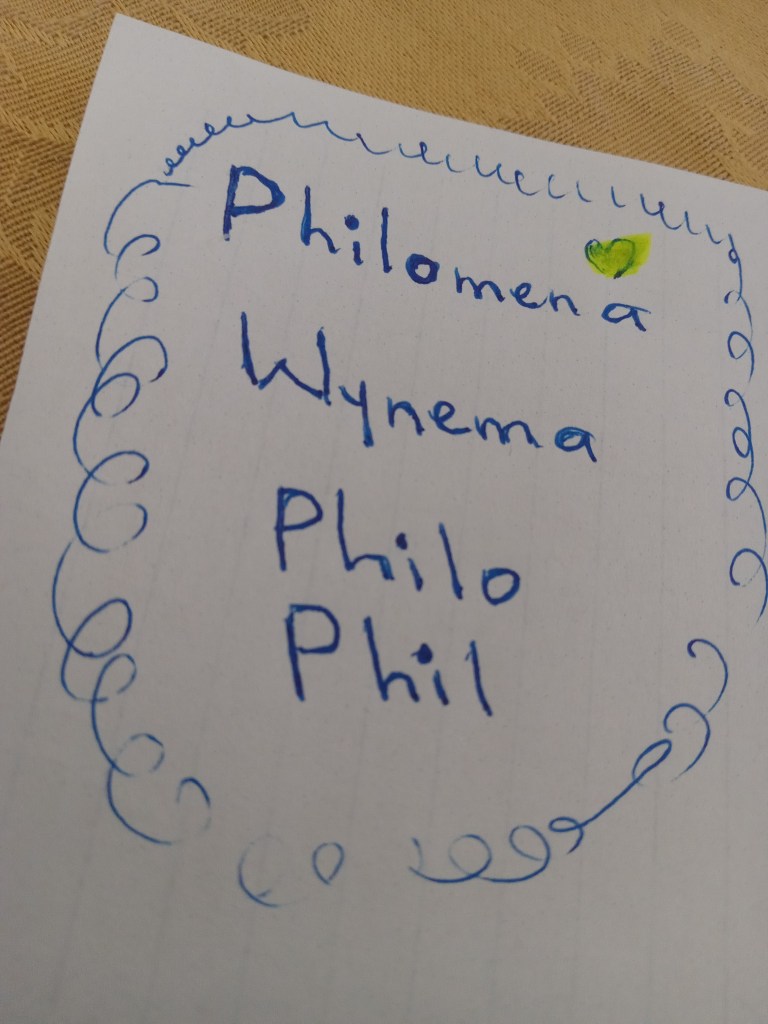 Philomena
Wynema
Philo
Phil